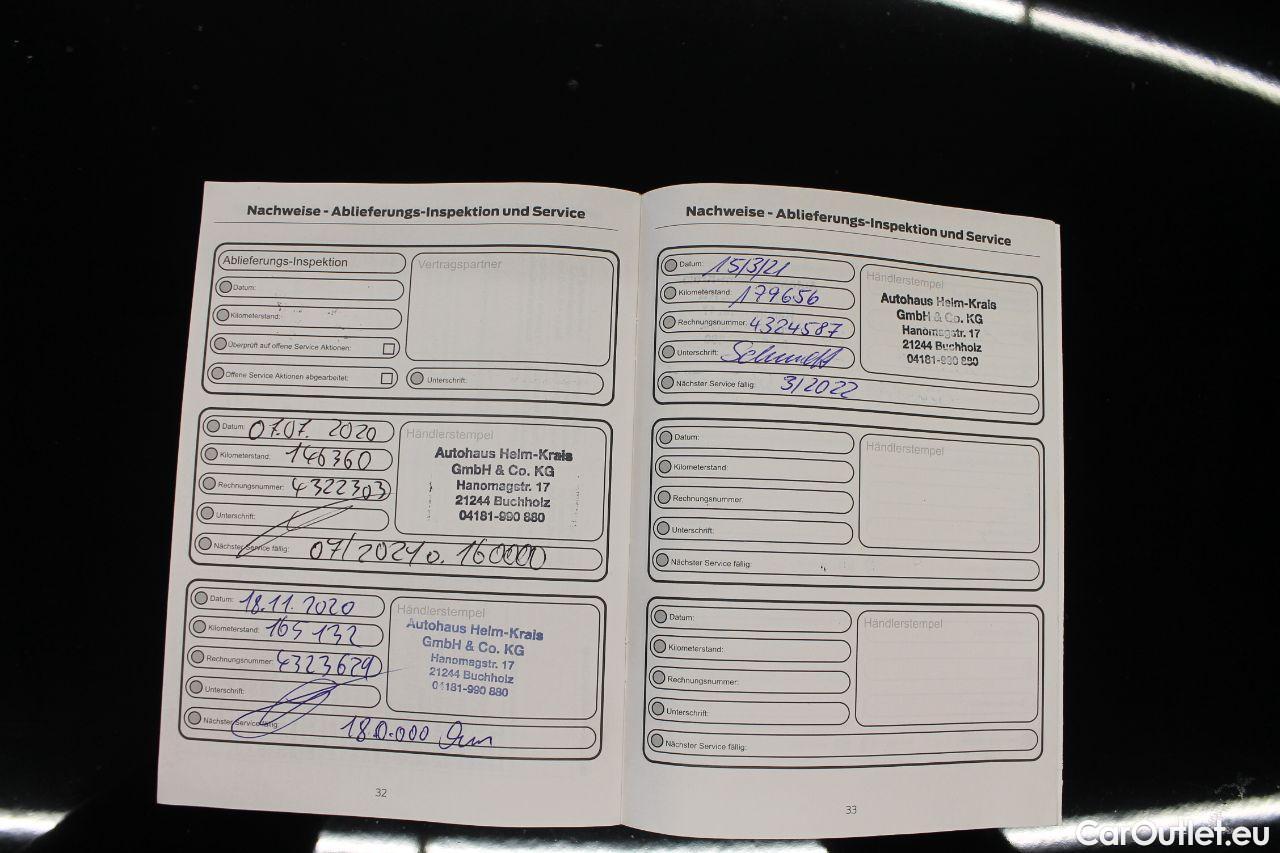 Nachweise - Ablieferungs-Inspektion und Service
Ablieferungs-Inspektion
Vertragspartner
Datum:
Kilometerstand:
Überprüft auf offene Service Aktionen:
Offene Service Aktionen abgearbeitet:
Unterschrift:
Datum: 07.07. 2020
Kilometerstand: 146360
Rechnungsnummer: 4322303
Unterschrift:
Nächster Service fällig: 07/2021 o. 160000
Händlerstempel
Autohaus Helm-Krais
GmbH & Co. KG
Hanomagstr. 17
21244 Buchholz
04181-990 880
Datum: 18.11. 2020
Kilometerstand: 165 132
Rechnungsnummer: 4323629
Unterschrift:
Nächster Service fällig: 180.000
Händlerstempel
Autohaus Helm-Krais
GmbH & Co. KG
Hanomagstr. 17
21244 Buchholz
04181-990 880
32
Nachweise - Ablieferungs-Inspektion und Service
Datum: 15/3/21
Kilometerstand: 179656
Rechnungsnummer: 4324587
Unterschrift:
Nächster Service fällig: 3/2022
Händlerstempel
Autohaus Helm-Krais
GmbH & Co. KG
Hanomagstr. 17
21244 Buchholz
04181-990 880
Datum:
Kilometerstand:
Rechnungsnummer:
Unterschrift:
Nächster Service fällig:
Händlerstempel
Datum:
Kilometerstand:
Rechnungsnummer:
Unterschrift:
Nächster Service fällig:
Händlerstempel
33
CarOutlet.eu